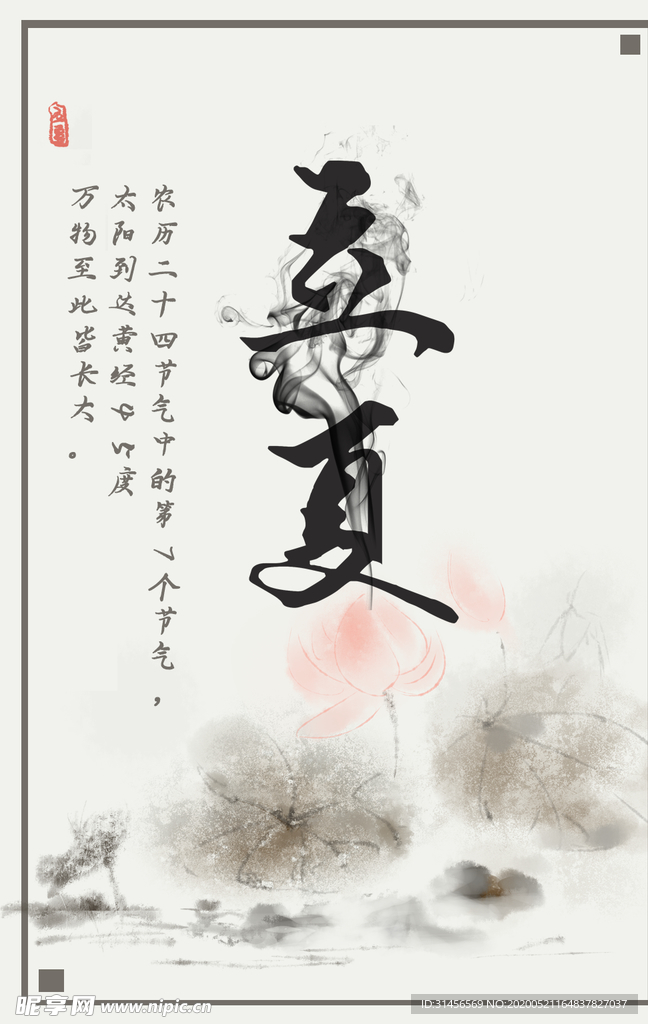 立夏
农历二十四节气中的第7个节气，
太阳到达黄经45度
万物至此皆长大。
昵享网 www.nipic.cn
ID:31456569 NO:20200521164837827037